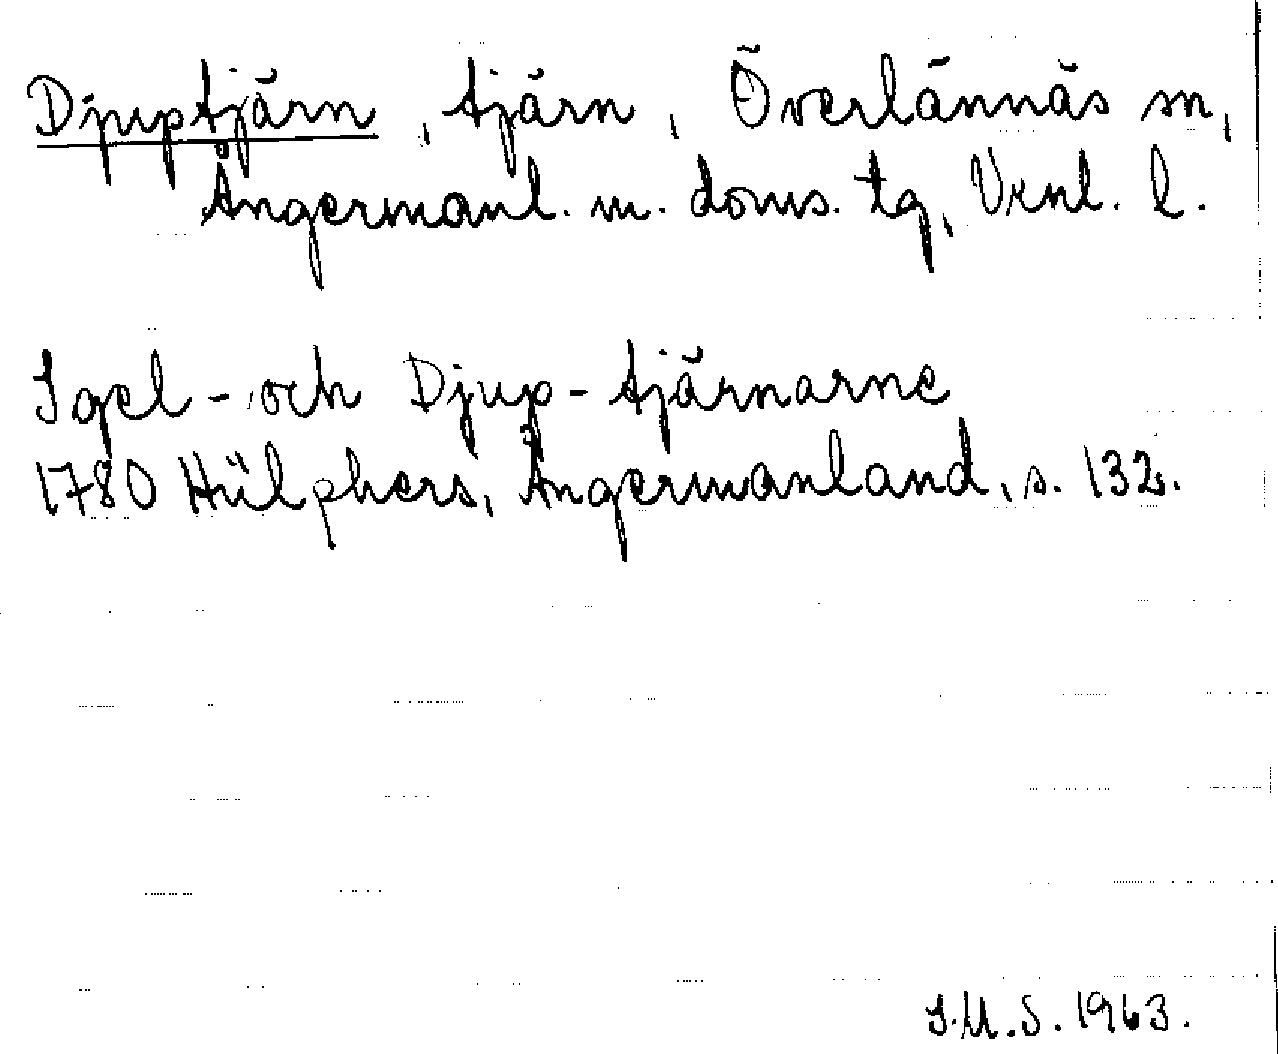 Djuptjärn, tjärn, Överlännäs sn,
Ångermanl. m. doms. tg, Vrnl. l.
Igel- och Djup-tjärnarne
1780 Hülphers, Ångermanland, s. 132.
I.M.S. 1963.